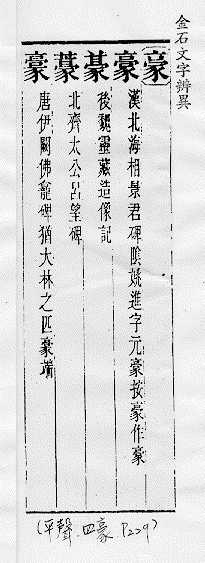 金石文字辨異
豪
豪 漢北海相景君碑陰姚進字元豪按豪作豪
後魏靈藏造像記
北齊太公呂望碑
豪 唐伊闕佛龕碑猶大林之匹豪端
(平聲.四豪 P229)